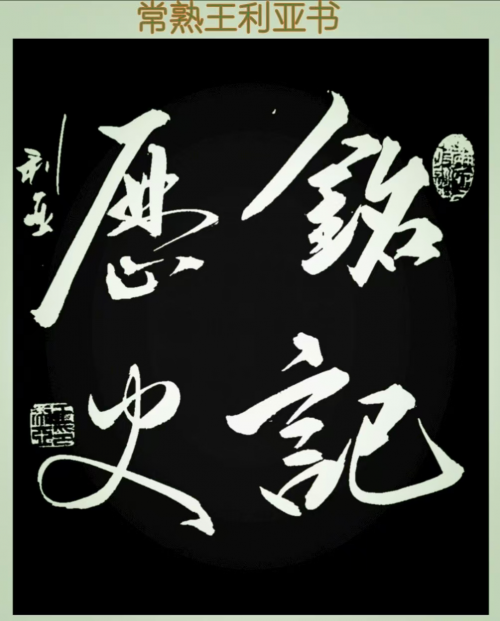 常熟王利亚书
銘記
歷史
利亚